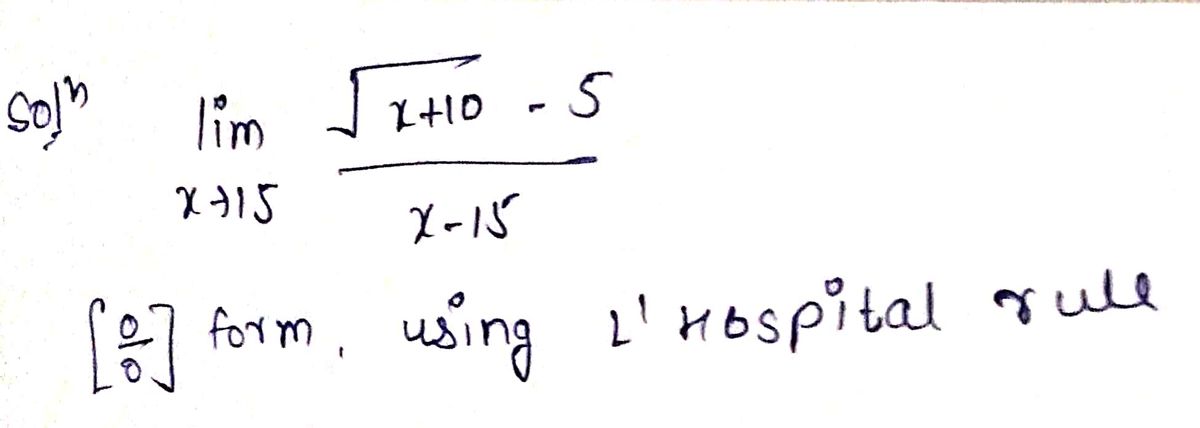 Solⁿ lim √x+10 - 5
x→15 x-15
[0/0] form, using L' Hospital rule